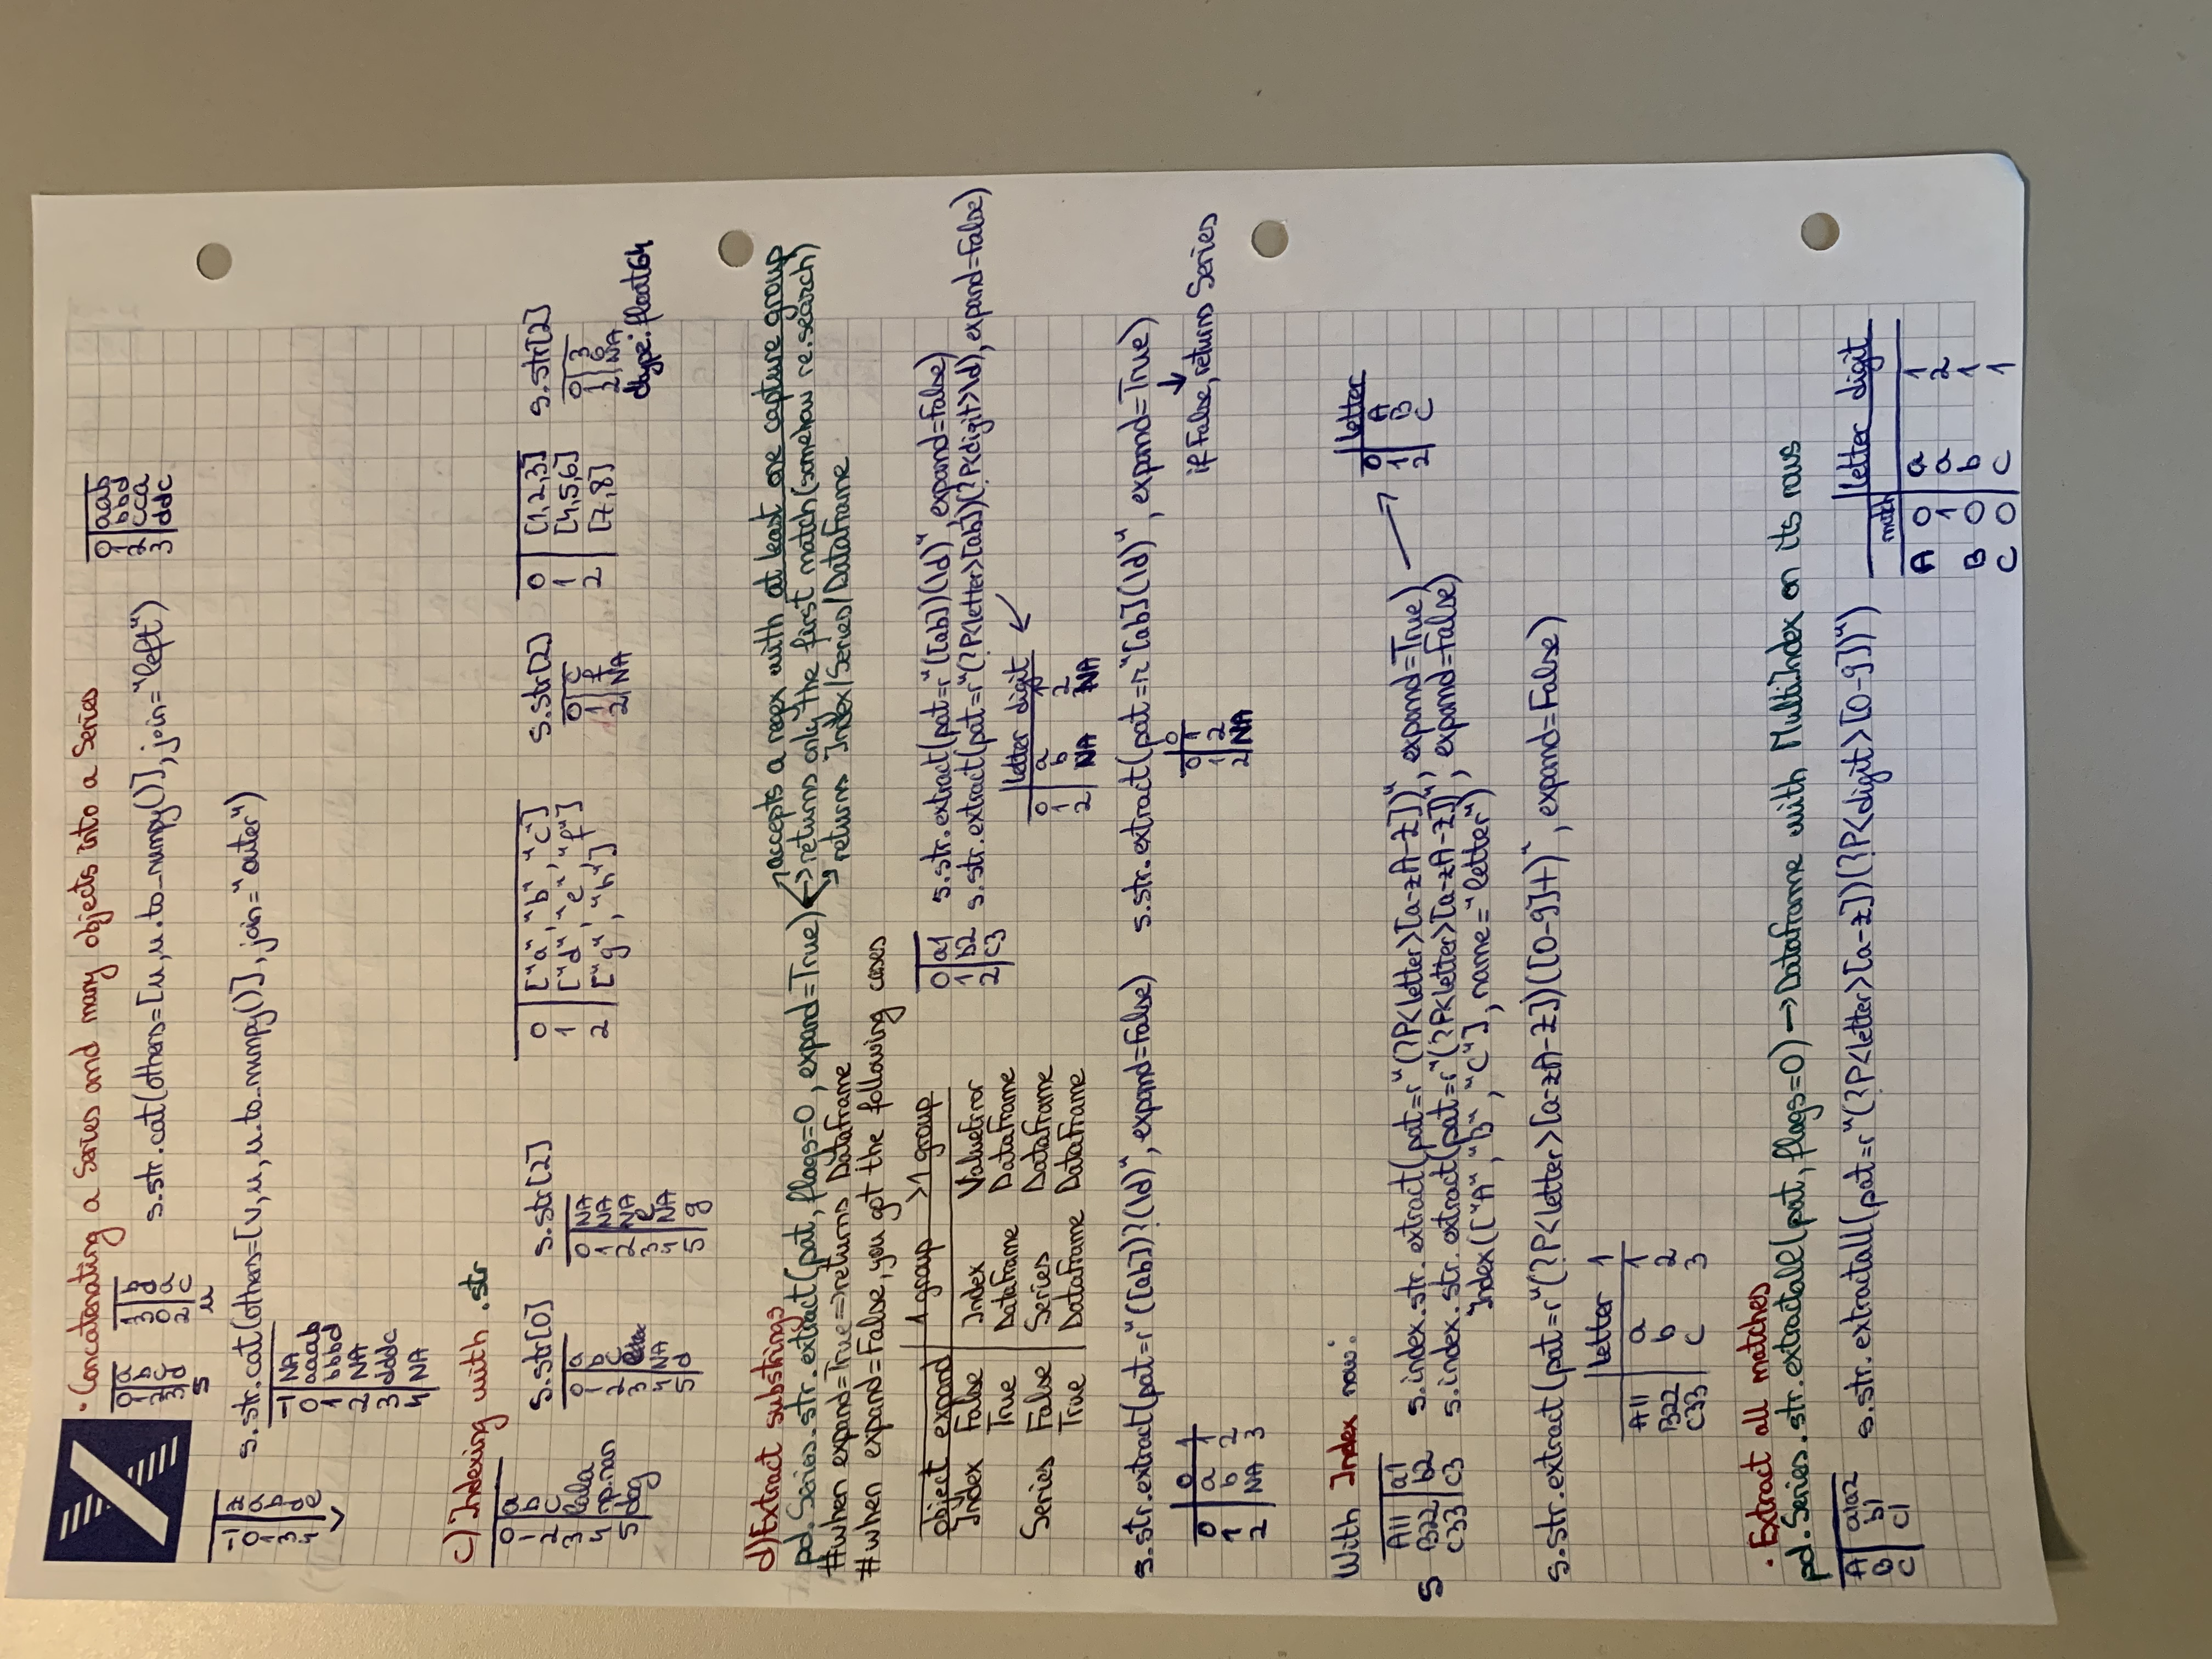 • Concatenating a Series and many objects into a Series
0 a
1 b
2 c
3 d
s
1 b
3 d
0 a
2 c
u
s.str.cat(others=[u, u.to_numpy()], join="left")
0 aab
1 bbd
2 cca
3 ddc
-1 z
0 a
1 b
3 d
4 e
s.str.cat(others=[v, u, u.to_numpy()], join="outer")
-1 NA
0 aaab
1 bbbd
2 NA
3 dddc
4 NA
c) Indexing with .str
0 a
1 b
2 c
3 lala
4 np.nan
5 dog
s.str[0]
0 a
1 b
2 c
3
4 NA
5 d
s.str[2]
0 NA
1 NA
2 NA
3 e
4 NA
5 g
0 ["a", "b", "c"]
1 ["d", "e", "f"]
2 ["g", "h"]
s.str[2]
0 c
1 f
2 NA
0 [1,2,3]
1 [4,5,6]
2 [7,8]
s.str[2]
0 3
1 6
2 NA
dtype: float64
d) Extract substrings
pd.Series.str.extract(pat, flags=0, expand=True)
→ accepts a regex with at least one capture group
→ returns only the first match (somehow re.search)
→ returns Index/Series/DataFrame
#when expand=True => returns DataFrame
#when expand=False, you got the following cases
1 group >1 group
object expand
Index False Index ValueError
True DataFrame DataFrame
Series False Series DataFrame
True DataFrame DataFrame
0 a1
1 b2
2 c3
s.str.extract(pat=r"([ab])(\d)", expand=False)
s.str.extract(pat=r"(?P<letter>[ab])(?P<digit>\d), expand=False)
letter digit
0 a 1
1 b 2
2 NA NA
s.str.extract(pat=r"([ab])?(\d)", expand=False)
0 1
0 a 1
1 b 2
2 NA 3
s.str.extract(pat=r"[ab](\d)", expand=True)
if False, returns Series
0
0 1
1 2
2 NA
With Index now:
s
A11 a1
B22 b2
C33 c3
s.index.str.extract(pat=r"(?P<letter>[a-zA-Z])", expand=True)
letter
0 A
1 B
2 C
s.index.str.extract(pat=r"(?P<letter>[a-zA-Z])", expand=False)
Index(["A", "B", "C"], name="letter")
s.str.extract(pat=r"(?P<letter>[a-zA-Z])([0-9]+)", expand=False)
letter 1
A11 a 1
B22 b 2
C33 c 3
• Extract all matches
pd.Series.str.extractall(pat, flags=0) → DataFrame with MultiIndex on its rows
A a1a2
B b1
C c1
s.str.extractall(pat=r"(?P<letter>[a-z])(?P<digit>[0-9])")
letter digit
match
A 0 a 1
1 a 2
B 0 b 1
C 0 c 1